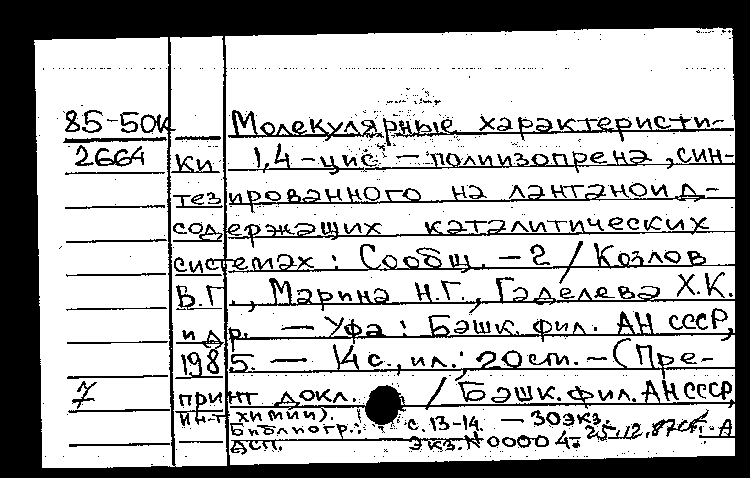 85-50к Молекулярные характеристи-
2664 ки 1,4-цис - полиизопрена, син-
тезированного на лантаноид-
содержащих каталитических
системах: Сообщ. - 2 / Козлов
В.Г., Марина Н.Г., Гаделева Х.К.
и др. — Уфа: Башк. фил. АН СССР,
1985. — 14 с., ил.; 20 см. - (Пре-
7 принт докл. / Башк. фил. АН СССР,
Ин-т химии).
Библиогр.: с. 13-14. — 30 экз.
ДСП. Экз. N 00004: 25.12.87